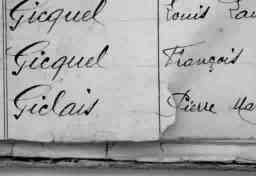 Gicquel Louis
Gicquel François
Giclais Pierre Ma